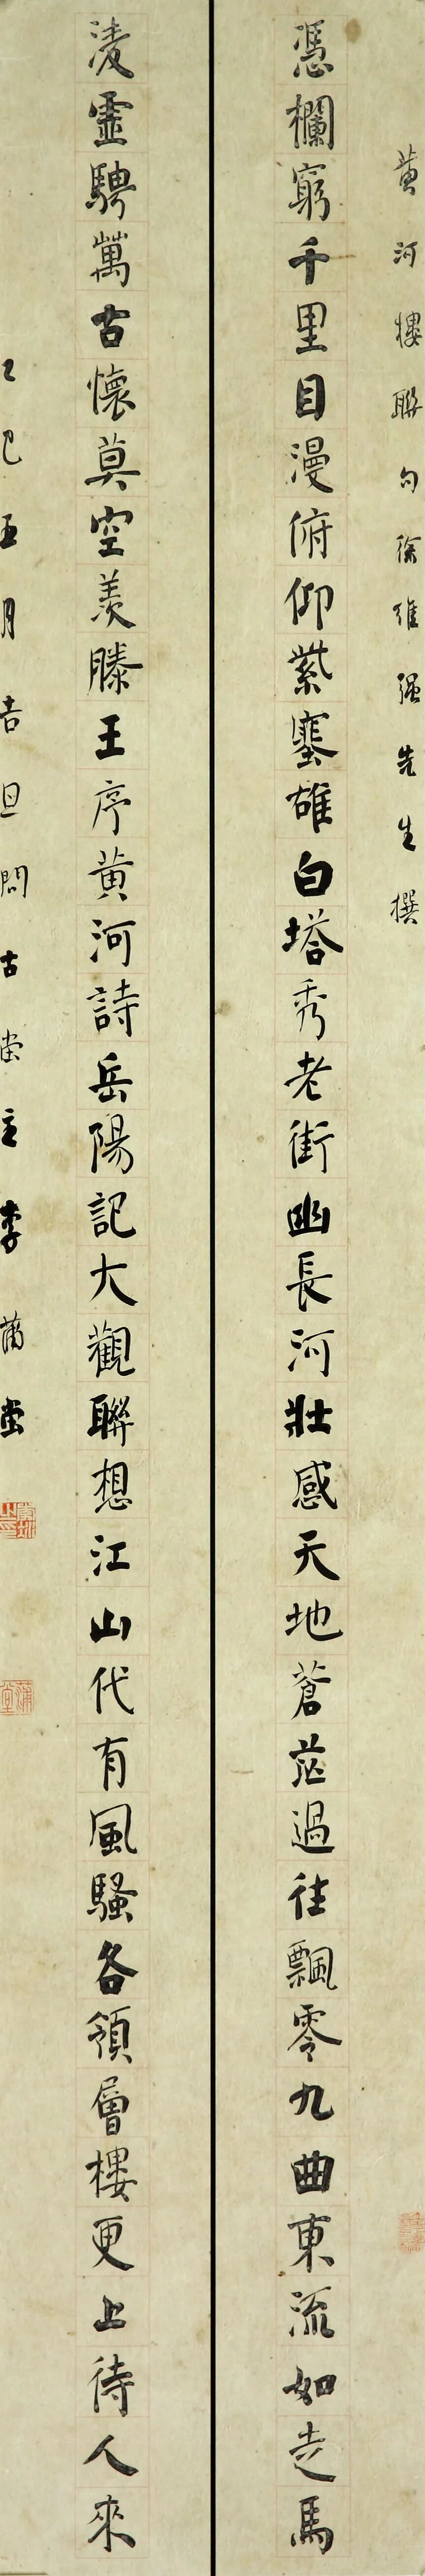 黄河樓聯句徐維强先生撰
憑欄窮千里目漫俯仰紫塞雄白塔秀老街幽長河壯感天地蒼茫過往飄零九曲東流如走馬
淩霊騁萬古懷莫空羨滕王序黄河詩岳陽記大觀聯想江山代有風騷各領層樓更上待人來
乙巳五月吉旦問古堂主李蒲堂
蒲堂